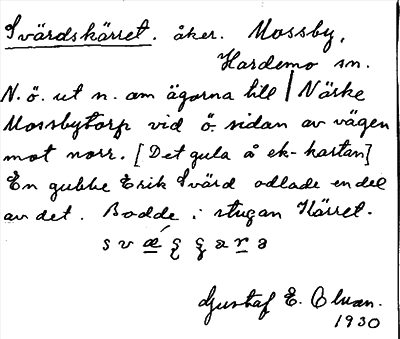 Svärdskärret. åker. Mossby,
Hardemo sn.
N.ö. ut n. om ägorna till | Närke
Mossbytorp vid ö. sidan av vägen
mot norr. [Det gula å ek-kartan]
En gubbe Erik Svärd odlade en del
av det. Bodde i stugan Kärret.
Gustaf E. Olsson.
1930